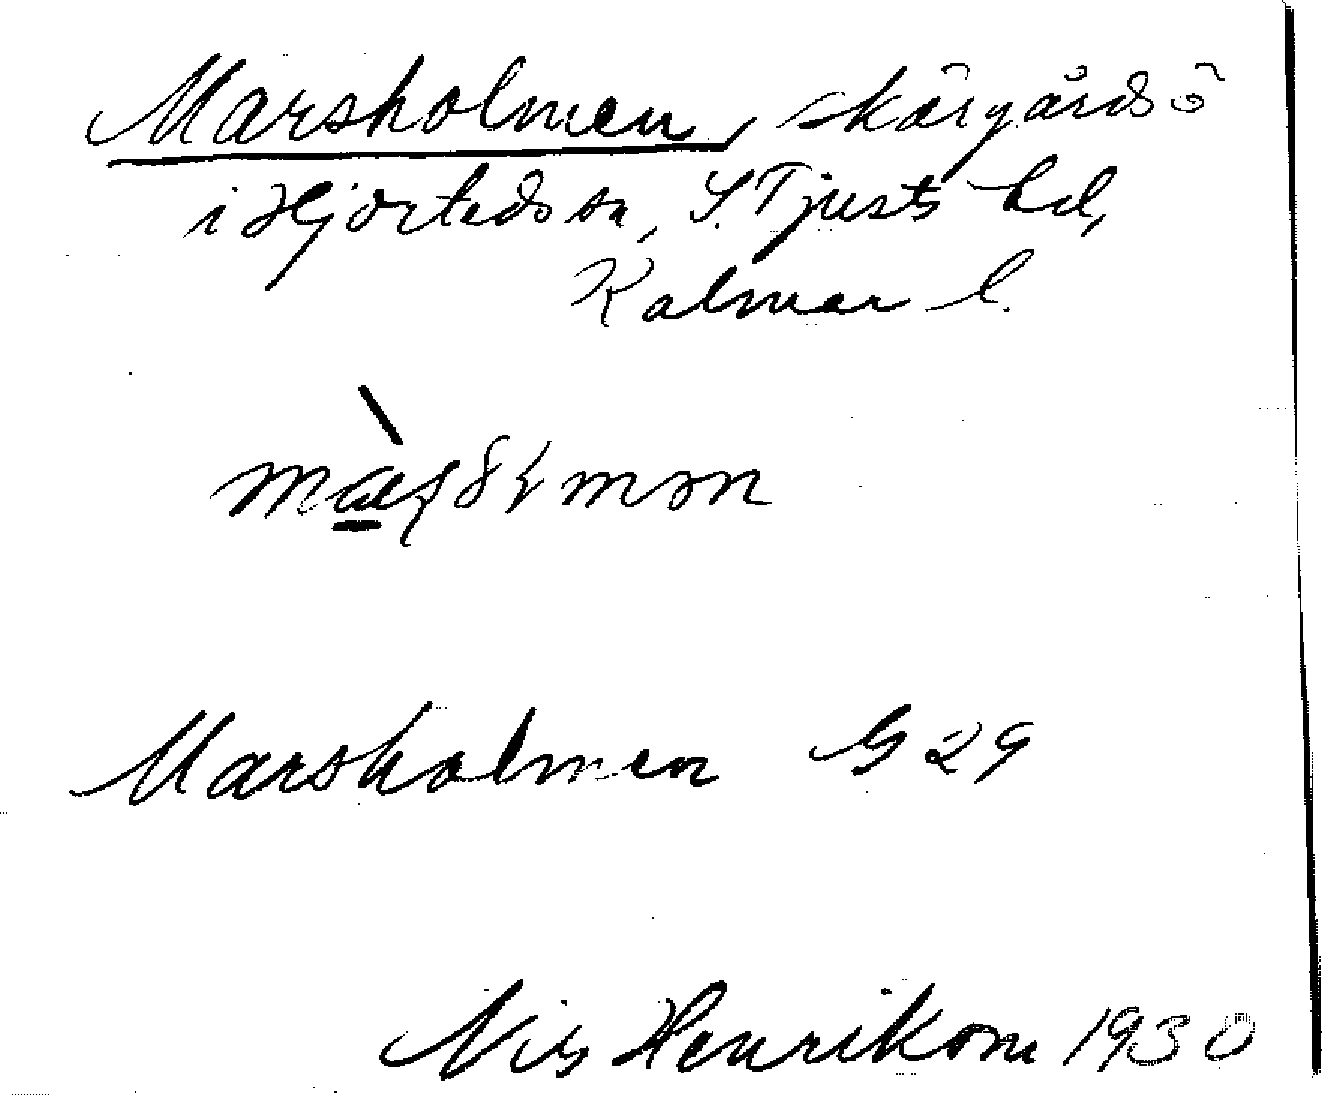 Marsholmen, skärgårdsö
i Hjorteds sn, S. Tjusts hd,
Kalmar l.
Marsholmen G 29
Nils Henrikson 1930